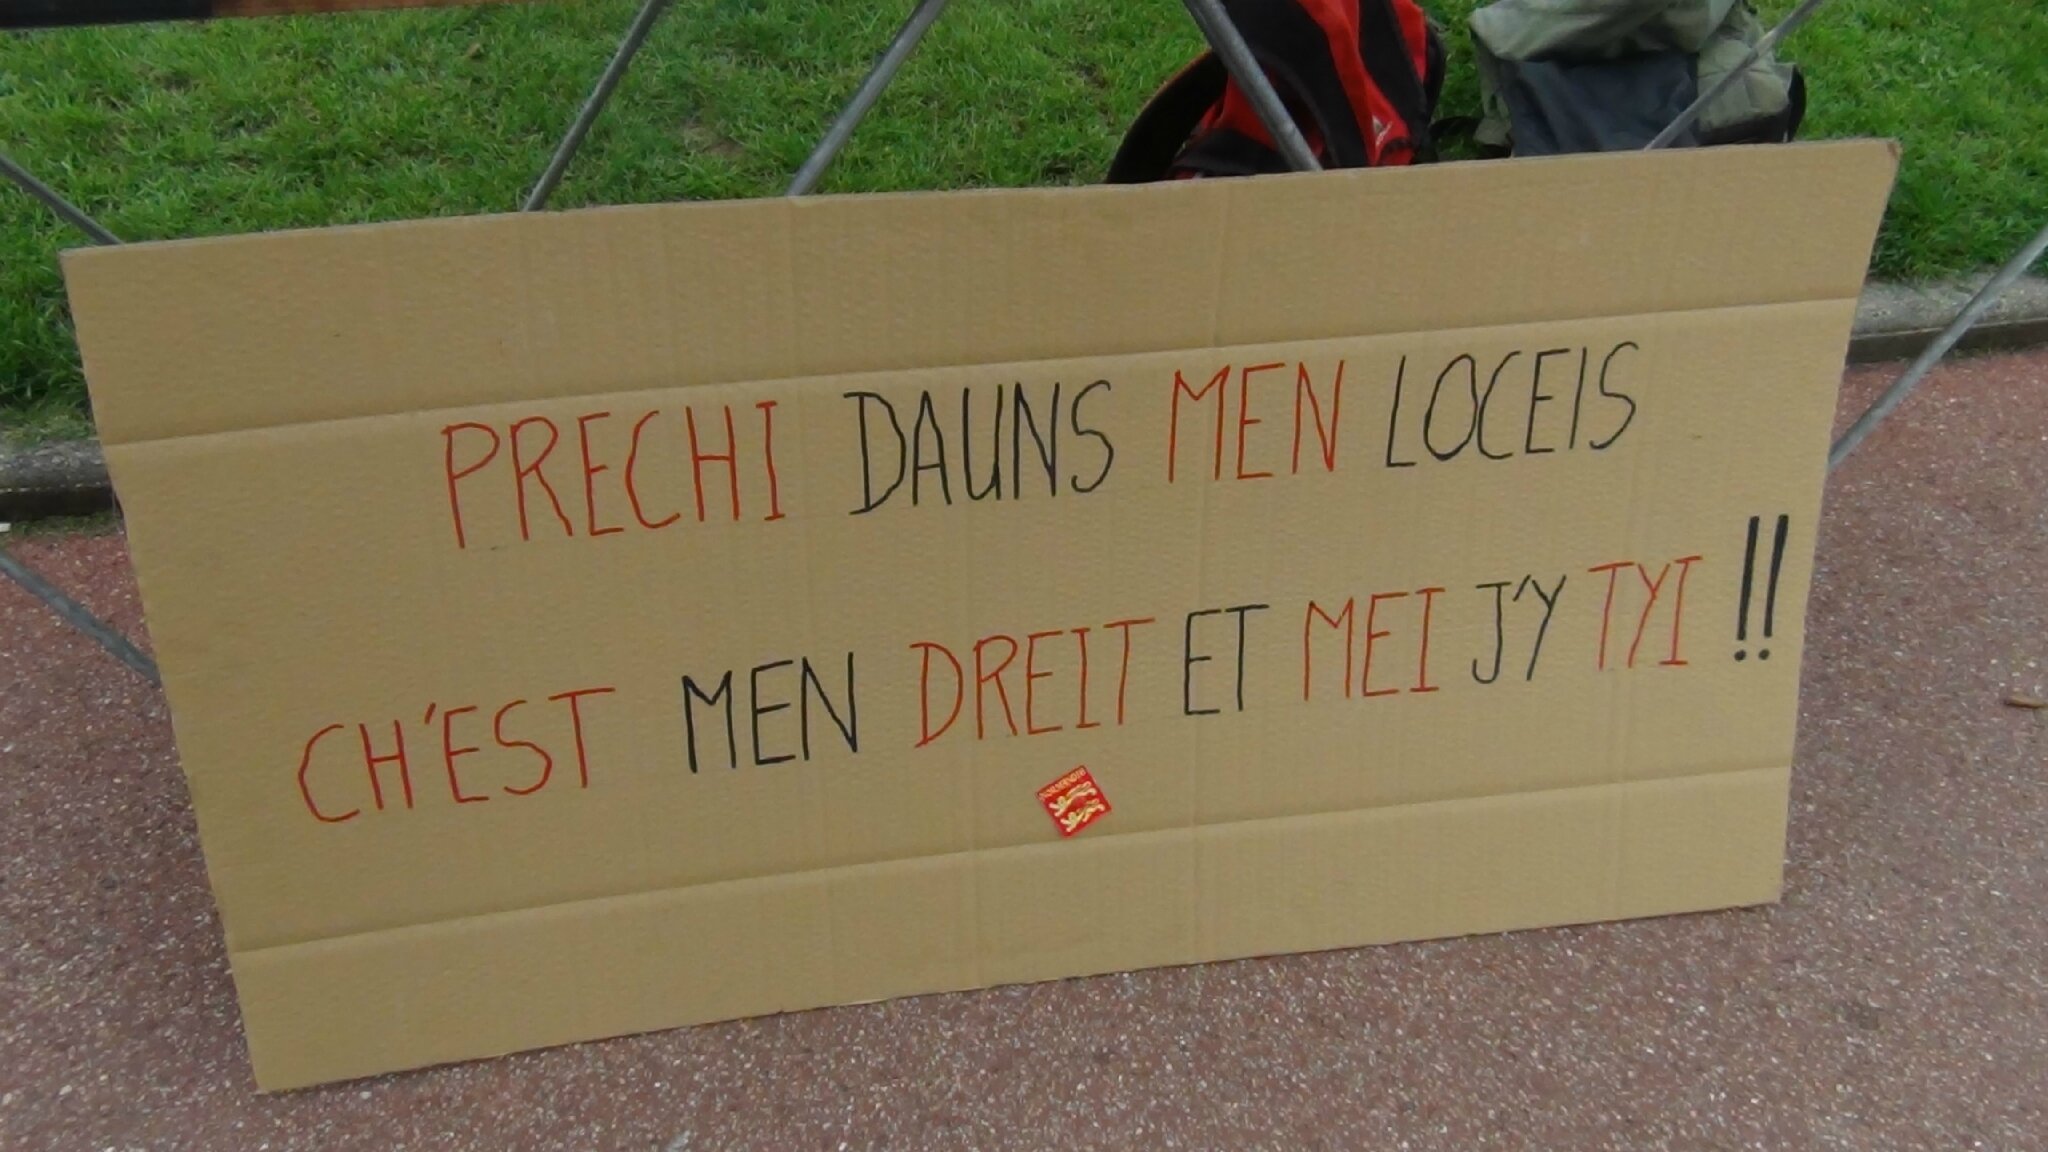 PRECHI DAUNS MEN LOCEIS
CH'EST MEN DREIT ET MEI J'Y TYI !!